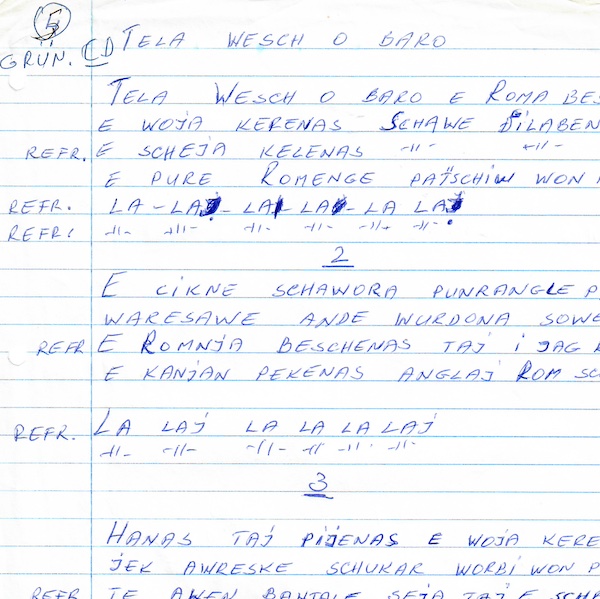 5
GRÜN. CD TELA WESCH O BARO
TELA WESCH O BARO E ROMA BES
E WOJA KERENAS SCHAWE DILABEN
REFR. E SCHEJA KELENAS -//- -//-
E PURE ROMENGE PATSCHIW WON
REFR. LA - LAJ - LAJ - LAJ - LA LAJ
REFR: -//- -//- -//- -//- -//- -//-
2
E CIKNE SCHAWORA PUNRANGLE P
WARESAWE ANDE WURDONA SOWE
REFR E ROMNJA BESCHENAS TAJ I JAG
E KANJAN PEKENAS ANGLAJ ROM SC
REFR. LA LAJ LA LA LA LAJ
-//- -//- -//- -//- -//- -//-
3
HANAS TAJ PIJENAS E WOJA KERE
JEK AWRESKE SCHUKAR WORBI WON P
REFR TE AWEN BAHTALE SEJA TAJ E SCHA